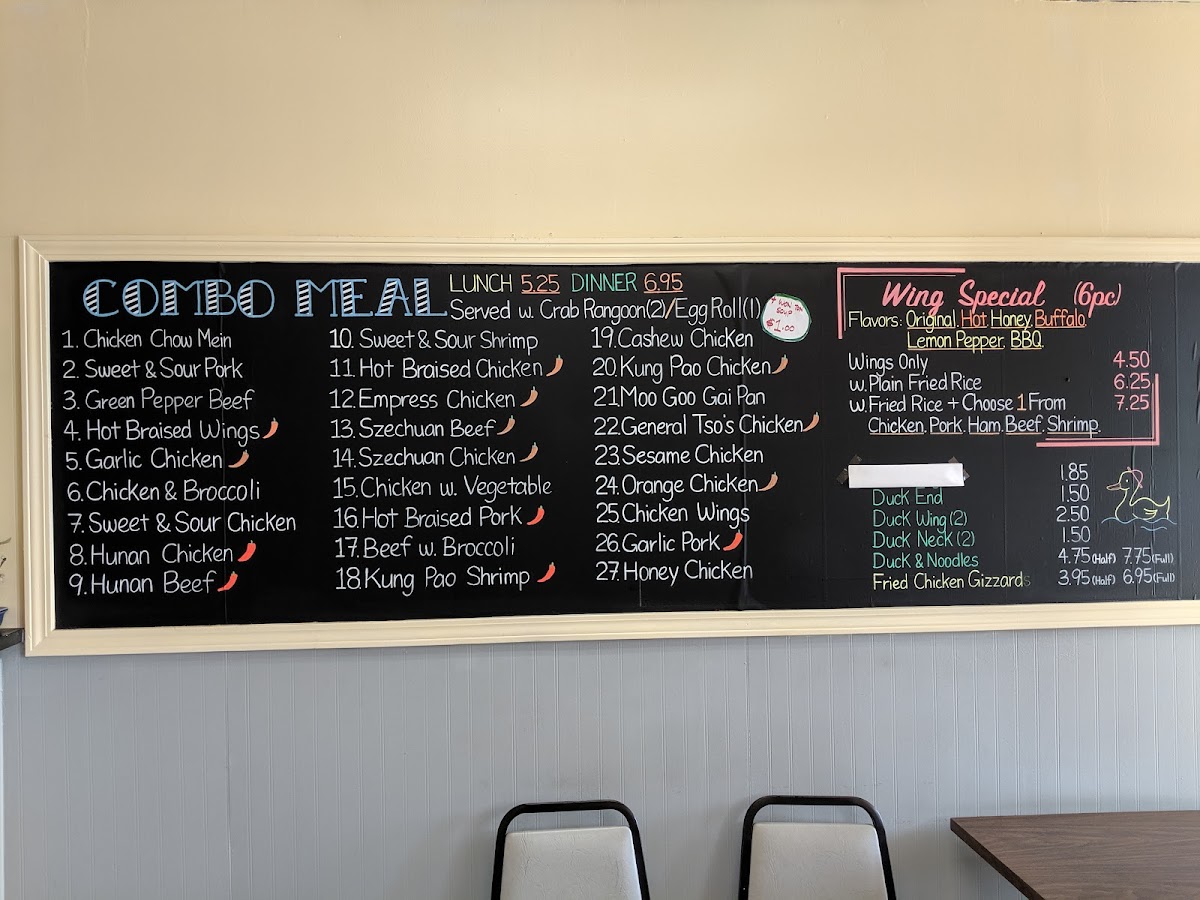 COMBO MEAL
LUNCH 5.25 DINNER 6.95
Served w. Crab Rangoon(2)/Egg Roll(1)
+ WON TON
SOUP
$1.00
1. Chicken Chow Mein
2. Sweet & Sour Pork
3. Green Pepper Beef
4. Hot Braised Wings
5. Garlic Chicken
6. Chicken & Broccoli
7. Sweet & Sour Chicken
8. Hunan Chicken
9. Hunan Beef
10. Sweet & Sour Shrimp
11. Hot Braised Chicken
12. Empress Chicken
13. Szechuan Beef
14. Szechuan Chicken
15. Chicken w. Vegetable
16. Hot Braised Pork
17. Beef w. Broccoli
18. Kung Pao Shrimp
19. Cashew Chicken
20. Kung Pao Chicken
21. Moo Goo Gai Pan
22. General Tso's Chicken
23. Sesame Chicken
24. Orange Chicken
25. Chicken Wings
26. Garlic Pork
27. Honey Chicken
Wing Special (6pc)
Flavors: Original. Hot. Honey. Buffalo.
Lemon Pepper. BBQ.
Wings Only 4.50
w. Plain Fried Rice 6.25
w. Fried Rice + Choose 1 From 7.25
Chicken. Pork. Ham. Beef. Shrimp.
1.85
Duck End 1.50
Duck Wing (2) 2.50
Duck Neck (2) 1.50
Duck & Noodles 4.75 (Half) 7.75 (Full)
Fried Chicken Gizzards 3.95 (Half) 6.95 (Full)